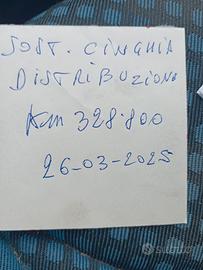 SOST. CINGHIA
DISTRIBUZIONE
Km 328.800
26-03-2025
subito